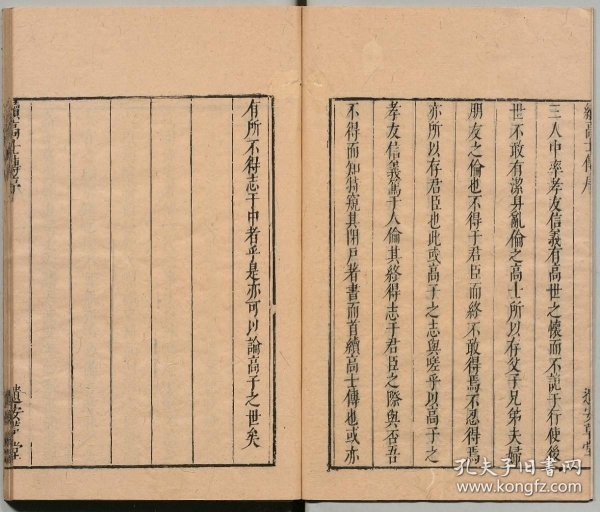 續高士傳序
三人中率孝友信義有高世之懷而不詭于行使後
世不敢有潔身亂倫之高士所以存父子兄弟夫婦
朋友之倫也不得于君臣而終不敢得焉不忍得焉
亦所以存君臣也此或高子之志與嗟乎以高子之
孝友信義篤于人倫其終得志于君臣之際與否吾
不得而知特窺其閉戶著書而首續高士傳也或亦
遺安草堂
有所不得志于中者乎是亦可以論高子之世矣
續高士傳序
遺安草堂
孔夫子旧书网
www.kongfz.com